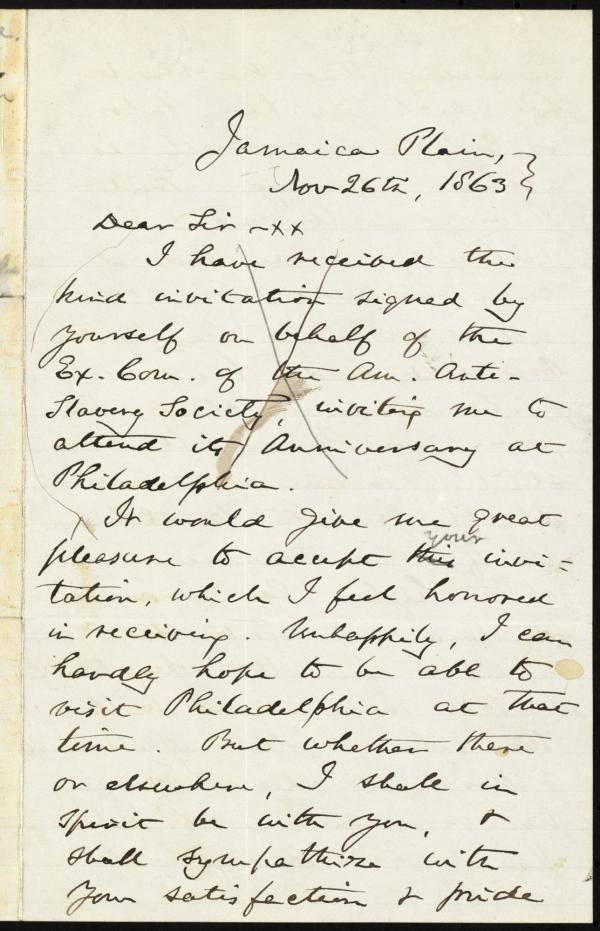 Jamaica Plain,
Nov 26th, 1863
Dear Sir -xx
I have received the
kind invitation signed by
yourself on behalf of the
Ex. Com. of the Am. Anti-
Slavery Society, inviting me to
attend its Anniversary at
Philadelphia.
It would give me great
your
pleasure to accept this invi=
tation, which I feel honored
in receiving. Unhappily, I can
hardly hope to be able to
visit Philadelphia at that
time. But whether there
or elsewhere, I shall in
spirit be with you, &
shall sympathize with
your satisfaction & pride